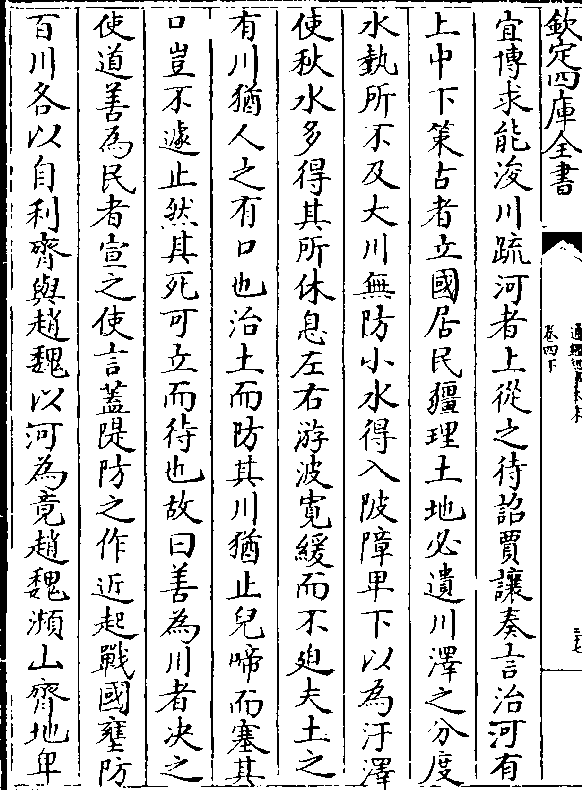 欽定四庫全書
卷四下
宜博求能浚川疏河者上從之待詔賈讓奏言治河有
上中下策古者立國居民疆理土地必遺川澤之分度
水埶所不及大川無防小水得入陂障卑下以為汙澤
使秋水多得其所休息左右游波寛緩而不廹夫土之
有川猶人之有口也治土而防其川猶止兒啼而塞其
口豈不遽止然其死可立而待也故曰善為川者决之
使道善為民者宣之使言蓋隄防之作近起戰國壅防
百川各以自利齊與趙魏以河為竟趙魏瀕山齊地卑